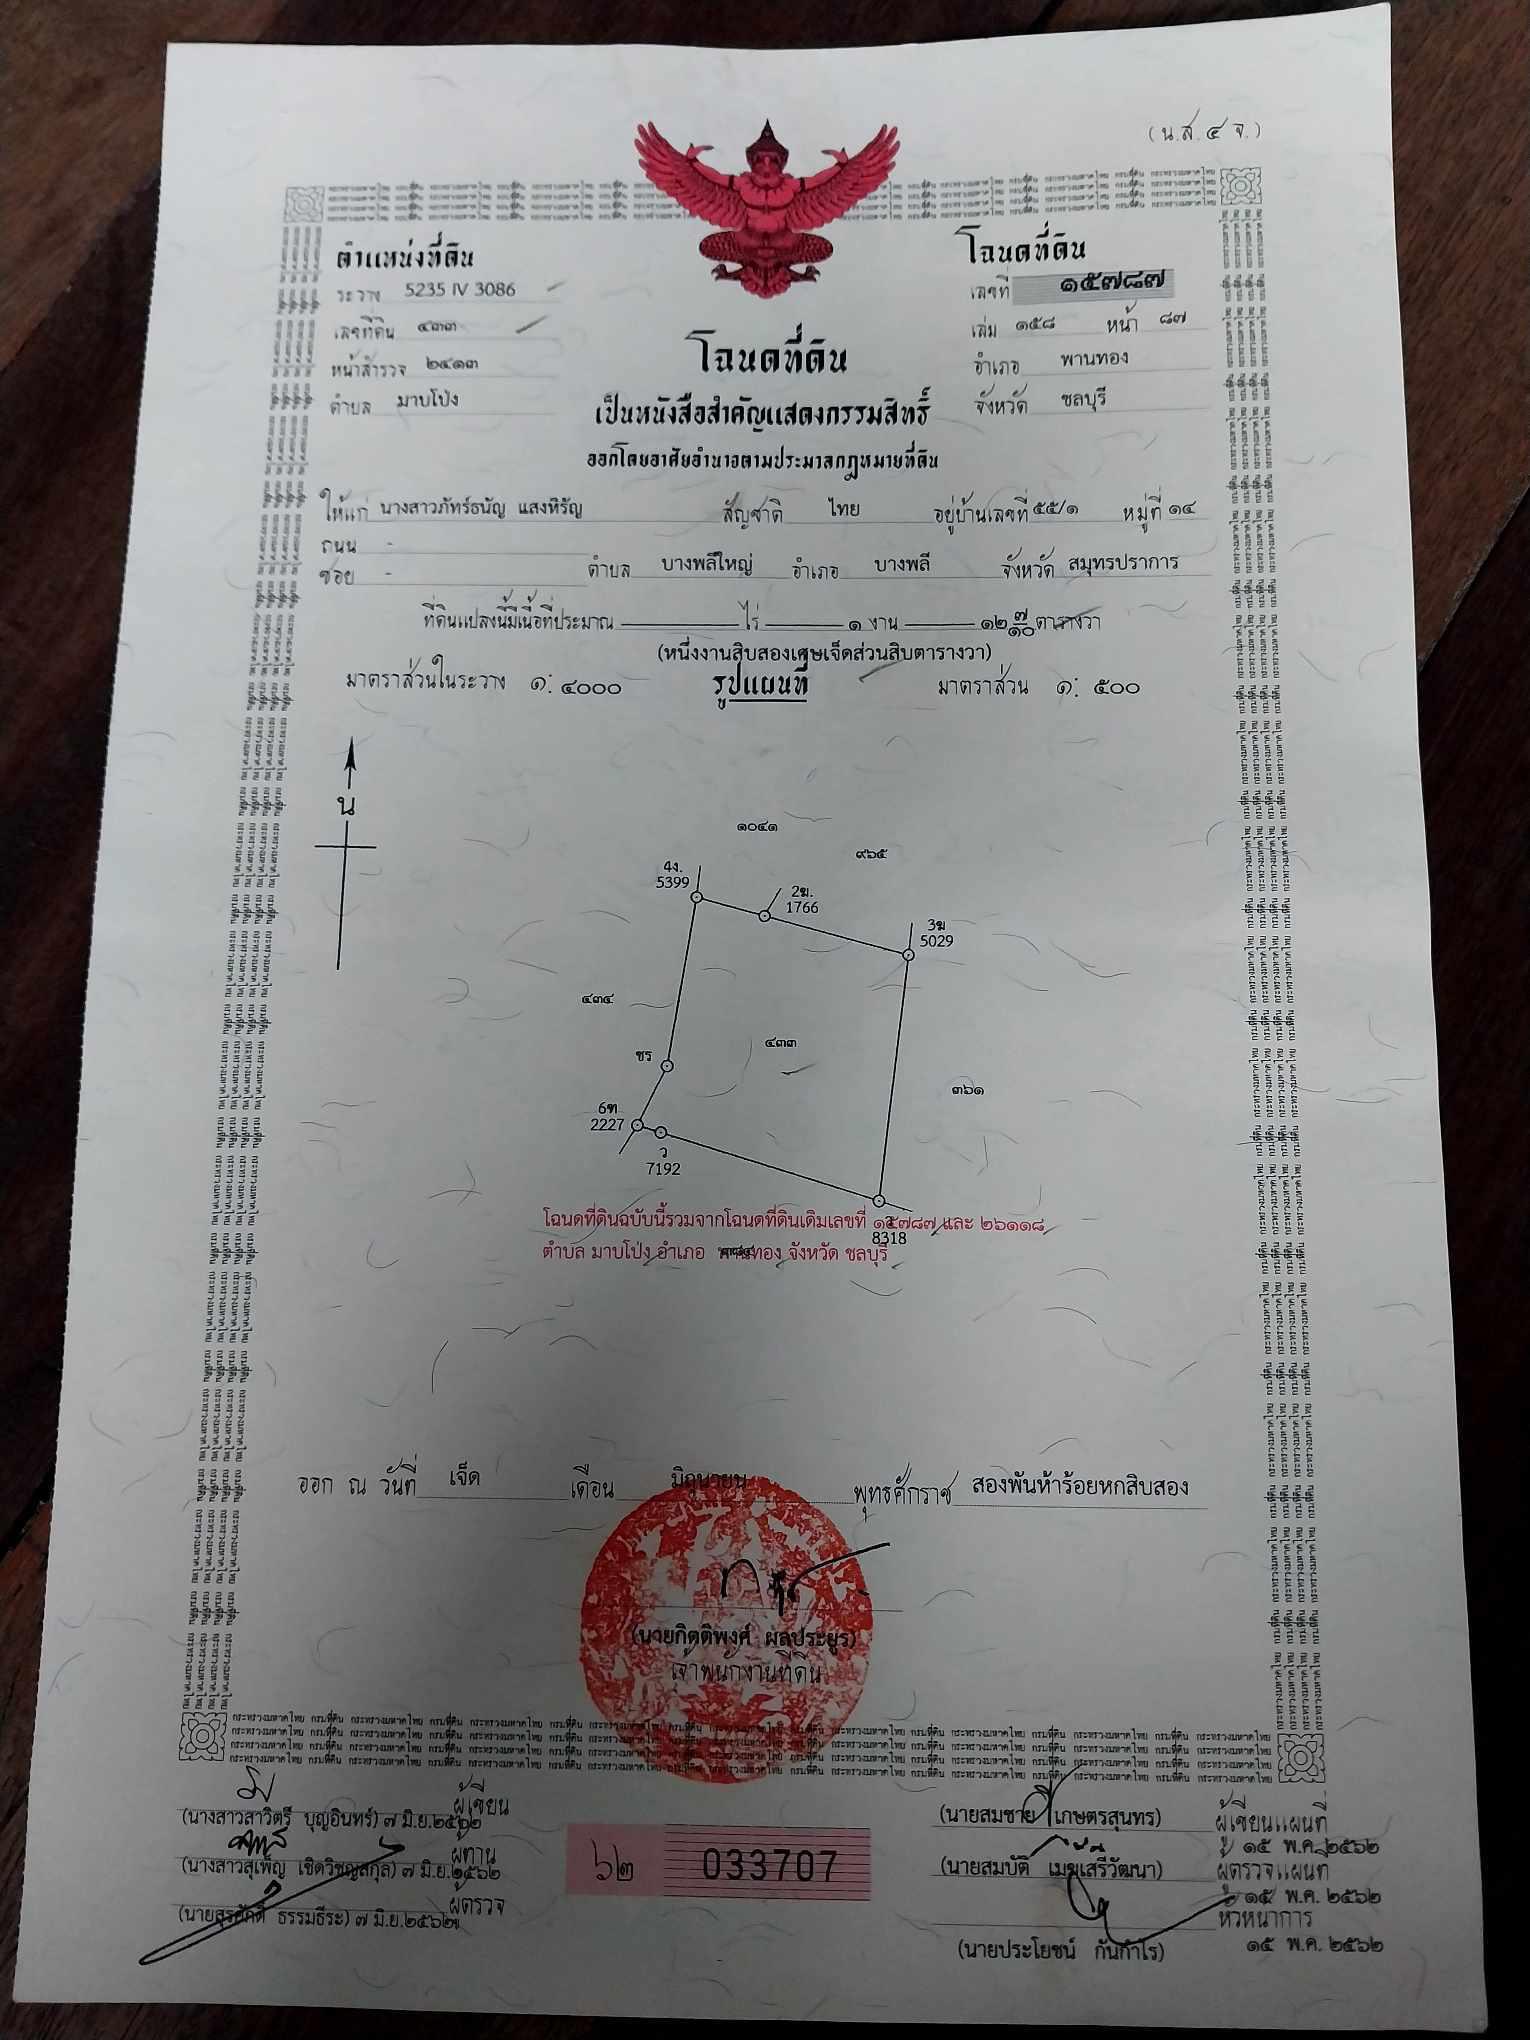 (น.ส. ๔ จ.)
ตำแหน่งที่ดิน
ระวาง 5235 IV 3086
เลขที่ดิน ๔๓๓
หน้าสำรวจ ๒๔๑๓
ตำบล มาบโป่ง
โฉนดที่ดิน
เลขที่ ๑๕๗๘๗
เล่ม ๑๕๘ หน้า ๘๗
อำเภอ พานทอง
จังหวัด ชลบุรี
โฉนดที่ดิน
เป็นหนังสือสำคัญแสดงกรรมสิทธิ์
ออกโดยอาศัยอำนาจตามประมวลกฎหมายที่ดิน
ให้แก่ นางสาวภัทร์ธนัญ แสงหิรัญ สัญชาติ ไทย อยู่บ้านเลขที่ ๕๕/๑ หมู่ที่ ๑๔
ถนน -
ซอย - ตำบล บางพลีใหญ่ อำเภอ บางพลี จังหวัด สมุทรปราการ
ที่ดินแปลงนี้มีเนื้อที่ประมาณ ไร่ ๑ งาน ๑๒ ๗/๑๐ ตารางวา
(หนึ่งงานสิบสองเศษเจ็ดส่วนสิบตารางวา)
มาตราส่วนในระวาง ๑: ๔๐๐๐ รูปแผนที่ มาตราส่วน ๑: ๕๐๐
น
๑๐๔๑
๙๖๕
4ง.
5399
2ฆ.
1766
3ฆ
5029
๔๓๔
๔๓๓
ชร
๓๖๑
6ฑ
2227
ว
7192
โฉนดที่ดินฉบับนี้รวมจากโฉนดที่ดินเดิมเลขที่ ๑๕๗๘๗ และ ๒๖๑๑๘
8318
ตำบล มาบโป่ง อำเภอ พานทอง จังหวัด ชลบุรี
ออก ณ วันที่ เจ็ด เดือน มิถุนายน พุทธศักราช สองพันห้าร้อยหกสิบสอง
(นายกิตติพงศ์ ผลประยูร)
เจ้าพนักงานที่ดิน
กระทรวงมหาดไทย กรมที่ดิน
(นางสาวสาวิตรี บุญอินทร์) ๗ มิ.ย.๒๕๖๒ ผู้เขียน
(นางสาวสุเพ็ญ เชิดวิชญสกุล) ๗ มิ.ย.๒๕๖๒ ผู้ทาน
(นายสุรศักดิ์ ธรรมธีระ) ๗ มิ.ย.๒๕๖๒ ผู้ตรวจ
๖๒ 033707
(นายสมชาย เกษตรสุนทร) ผู้เขียนแผนที่
๑๕ พ.ค. ๒๕๖๒
(นายสมบัติ เมฆเสรีวัฒนา) ผู้ตรวจแผนที่
๑๕ พ.ค. ๒๕๖๒
หัวหน้าการ
(นายประโยชน์ กันกำไร) ๑๕ พ.ค. ๒๕๖๒